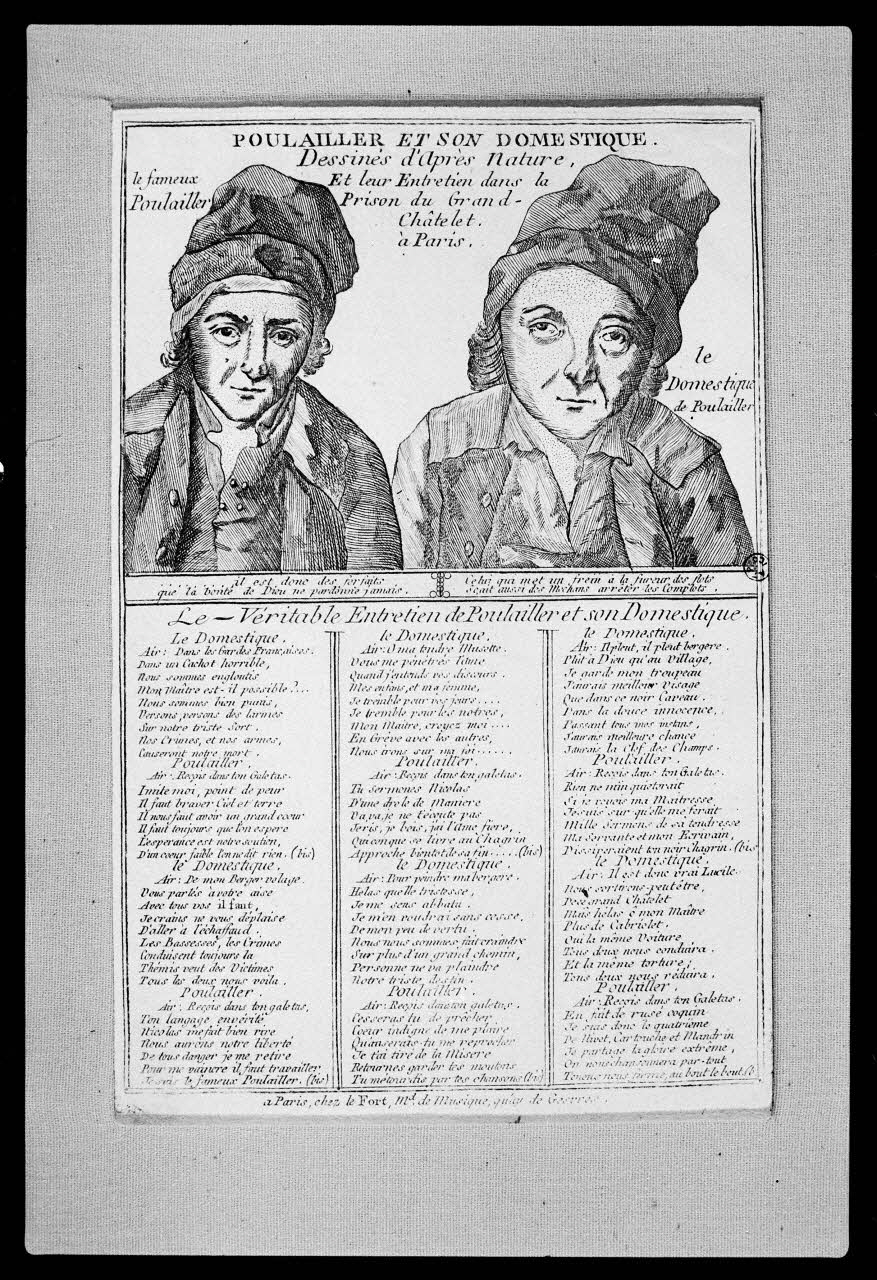 POULAILLER ET SON DOMESTIQUE.
Dessinés d'Après Nature,
Et leur Entretien dans la
Prison du Grand-
Châtelet.
à Paris.
le fameux
Poulailler
le
Domestique
de Poulailler
il est donc des forfaits
que la bonté de Dieu ne pardonne jamais.
Celui qui met un frein à la fureur des flots
Sçait aussi des Méchans arrêter les Complots.
Le Véritable Entretien de Poulailler et son Domestique.
Le Domestique.
Air: Dans les Gardes Françaises.
Dans un Cachot horrible,
Nous sommes engloutis
Mon Maître est-il possible?...
Nous sommes bien punis,
Versons, versons des larmes
Sur notre triste Sort.
Nos Crimes, et nos armes,
Causeront notre mort.
Poulailler.
Air: Reçois dans ton Galetas.
Imite moi, point de peur
Il faut braver Ciel et terre
Il nous faut avoir un grand cœur
Il faut toujours que l'on espere
L'esperance est notre soutien,
D'un cœur faible l'on ne dit rien. (bis)
le Domestique.
Air: De mon Berger volage.
Vous parlés à votre aise
Avec tous vos il faut,
Je crains ne vous déplaise
D'aller à l'échaffaud.
Les Bassesses, les Crimes
Conduisent toujours la
Thémis veut des Victimes
Tous les deux nous voila.
Poulailler.
Air: Reçois dans ton galetas,
Ton langage en vérité
Nicolas me fait bien rire
Nous aurons notre liberté
De tous danger je me retire
Pour me vaincre il faut travailler
Je suis le fameux Poulailler. (bis)
le Domestique.
Air: O ma tendre Musette.
Vous me pénétrés l'âme
Quand j'entends vos discours.
Mes enfans, et ma femme,
Je tremble pour vos jours....
Je tremble pour les notres,
Mon Maître, croyez moi....
En Grève avec les autres,
Nous irons sur ma foi......
Poulailler.
Air: Reçois dans ton galetas.
Tu sermones Nicolas
D'une drole de Maniere
Va, va, je ne t'écoute pas
Je ris, je bois, j'ai l'âme fière,
Quiconque se livre au Chagrin
Approche bientôt de sa fin..... (bis)
le Domestique.
Air: Pour peindre ma bergere.
Helas quelle tristesse,
Je me sens abbatu.
Je m'en voudrai sans cesse,
De mon peu de vertu.
Nous nous sommes fait craindre
Sur plus d'un grand chemin,
Personne ne va plaindre
Notre triste destin.
Poulailler.
Air: Reçois dans ton galetas.
Cesseras tu de prêcher
Coeur indigne de me plaire
Qu'ainserais-tu me reprocher
Je t'ai tiré de la Misere
Retournes garder tes moutons
Tu m'étourdis par tes chansons (bis)
le Domestique.
Air: Il pleut, il pleut bergere.
Plût à Dieu qu'au Village,
Je garde mon troupeau
J'aurais meilleur visage
Que dans ce noir Caveau.
Dans la douce innocence,
Passant tous mes instans,
J'aurais meilleure chance
J'aurais la Clef des Champs.
Poulailler.
Air: Reçois dans ton Galetas.
Rien ne m'inquieterait
Si je revois ma Maitresse
Je suis sur qu'elle me ferait
Mille Sermens de sa tendresse
Ma Servante et mon Ecrivain,
Dissiperaient ton noir Chagrin. (bis
le Domestique.
Air: Il est donc vrai Lucile.
Nous sortirons peut être,
De ce grand Châtelet
Mais hélas ô mon Maître
Plus de Cabriolet.
Oui la même Voiture
Tous deux nous conduira.
Et la même torture;
Tous deux nous réduira.
Poulailler.
Air: Reçois dans ton Galetas.
En fait de ruse coquin
Je suis donc le quatrième
De Nivet, Cartouche et Mandrin
Je partage la gloire extrême,
On nous chansonnera par-tout
Tenons nous ferme, au bout le bout. (b
a Paris, chez le Fort, Md. de Musique, quay de Gesvres.